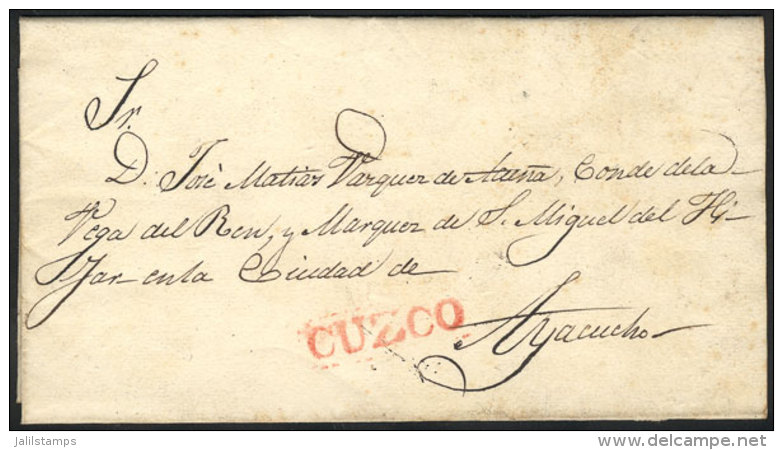 Sr.
D. Josè Matias Vazquez de Acuña, Conde de la
Vega del Ren, y Marquez de S. Miguel del Hi-
jar en la Ciudad de
CUZCO
Ayacucho
jalilstamps
www.delcampe.net